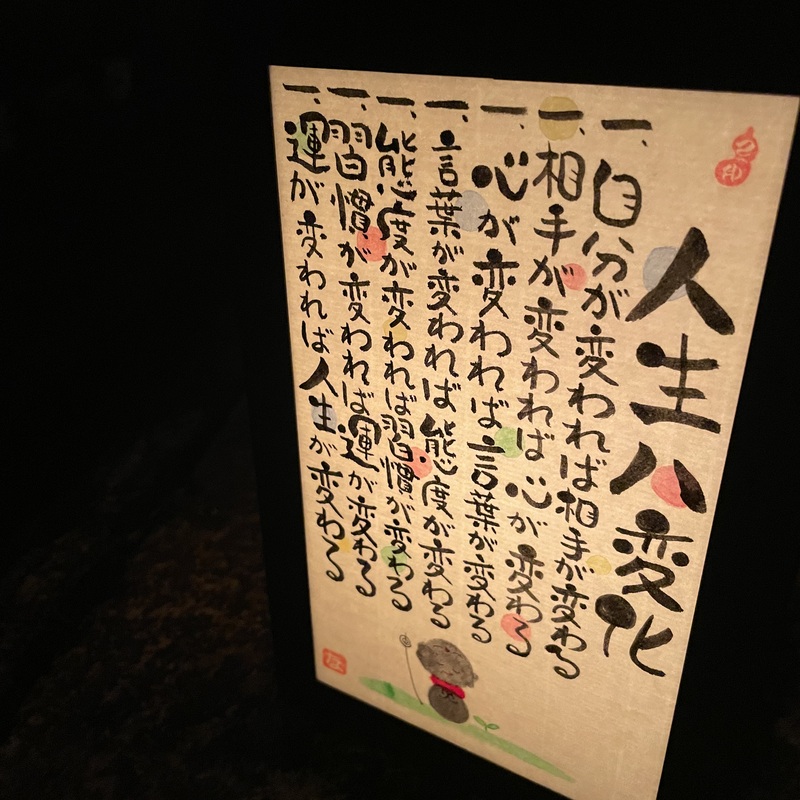 人生八変化
一、自分が変われば相手が変わる
一、相手が変われば心が変わる
一、心が変われば言葉が変わる
一、言葉が変われば態度が変わる
一、態度が変われば習慣が変わる
一、習慣が変われば運が変わる
一、運が変われば人生が変わる